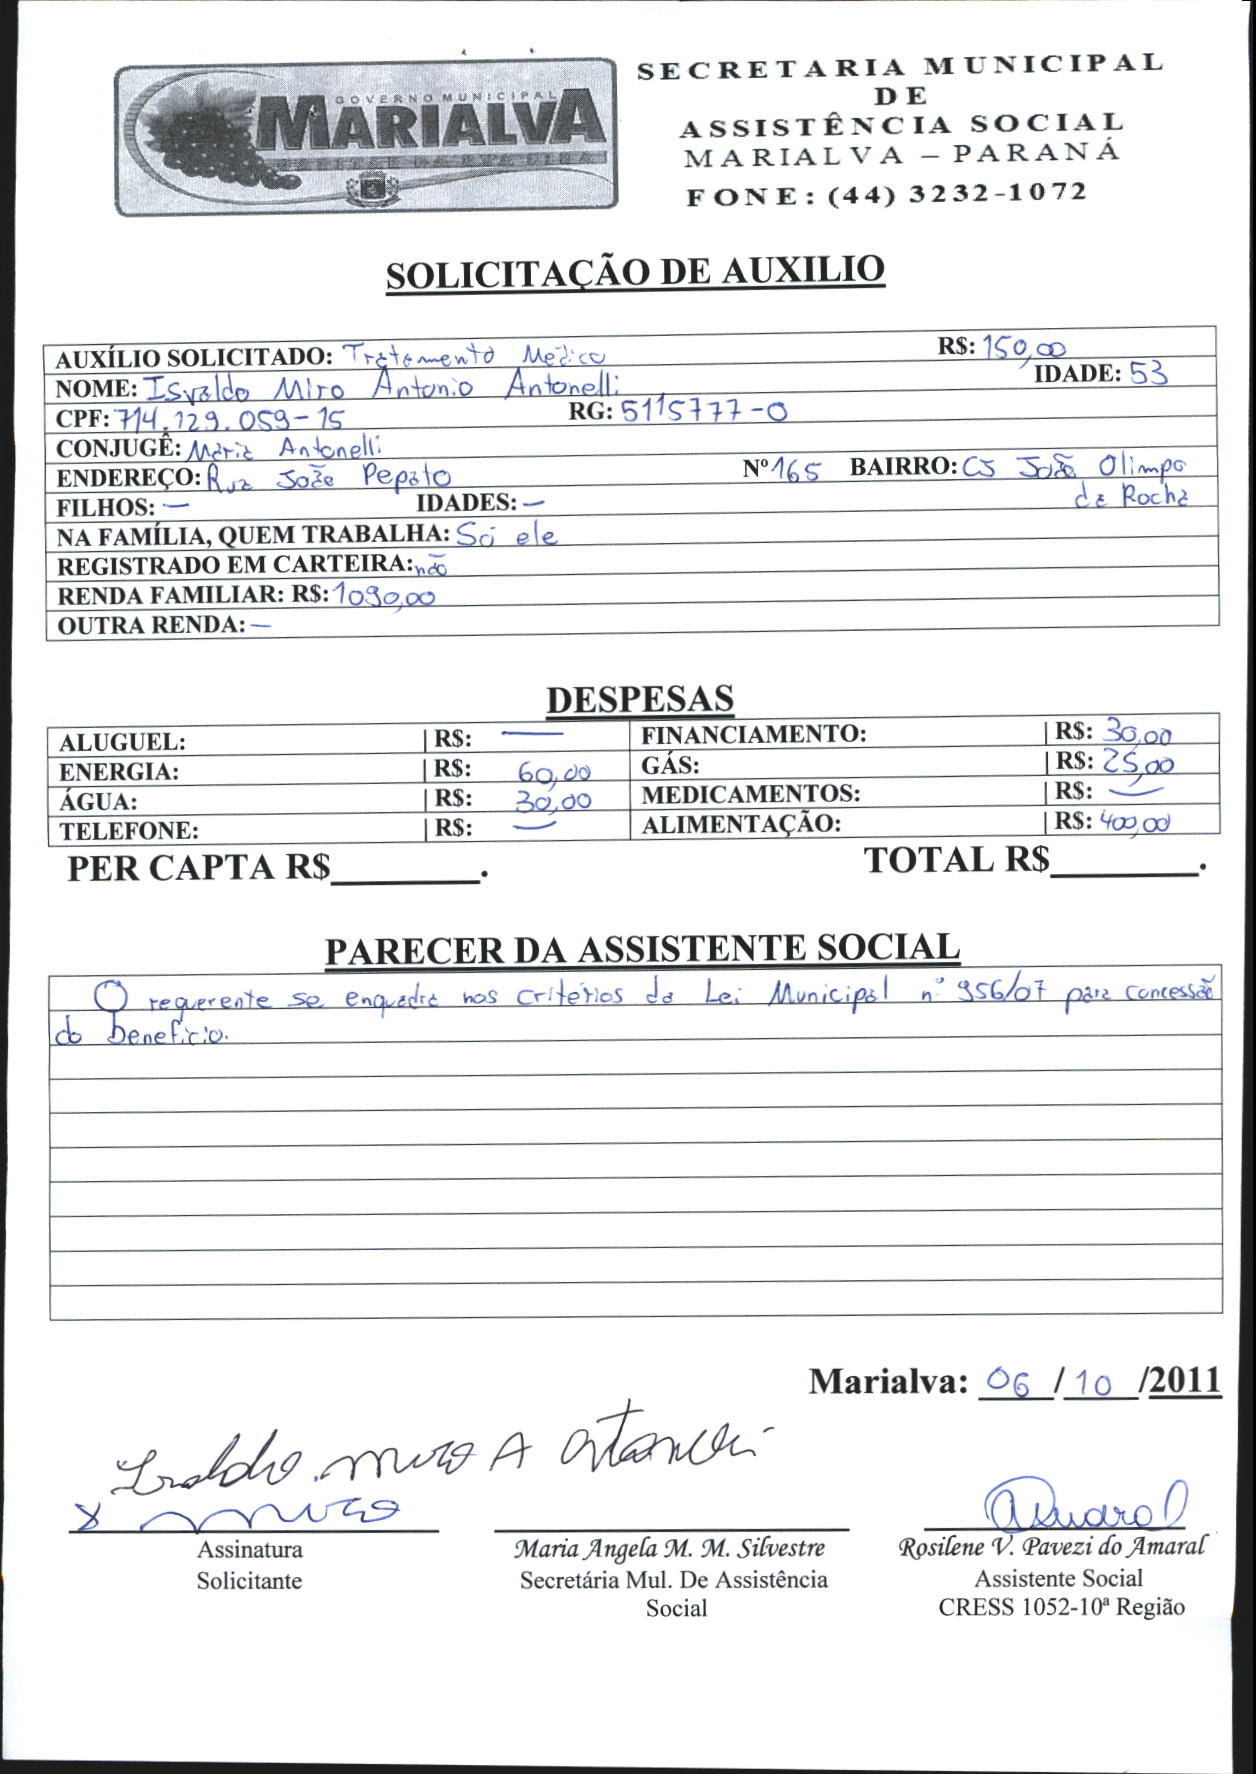 GOVERNO MUNICIPAL
MARIALVA
SECRETARIA MUNICIPAL
DE
ASSISTÊNCIA SOCIAL
MARIALVA – PARANÁ
FONE: (44) 3232-1072
SOLICITAÇÃO DE AUXILIO
AUXÍLIO SOLICITADO: Tratamento Médico R$: 150,00
NOME: Isvaldo Miro Antonio Antonelli IDADE: 53
CPF: 714.129.059-15 RG: 5115777-0
CONJUGÊ: Maria Antonelli
ENDEREÇO: Rua João Pepato Nº 165 BAIRRO: CJ João Olimpo
da Rocha
FILHOS: — IDADES: —
NA FAMÍLIA, QUEM TRABALHA: Só ele
REGISTRADO EM CARTEIRA: não
RENDA FAMILIAR: R$: 1090,00
OUTRA RENDA: —
DESPESAS
ALUGUEL: | R$: — FINANCIAMENTO: | R$: 30,00
ENERGIA: | R$: 60,00 GÁS: | R$: 25,00
ÁGUA: | R$: 30,00 MEDICAMENTOS: | R$: —
TELEFONE: | R$: — ALIMENTAÇÃO: | R$: 400,00
PER CAPTA R$________. TOTAL R$________.
PARECER DA ASSISTENTE SOCIAL
O requerente se enquadra nos critérios da Lei Municipal nº 956/07 para concessão
do benefício.
Marialva: 06/10/2011
Isvaldo miro A Antonelli
x miro Amaral
Assinatura
Solicitante
Maria Angela M. M. Silvestre
Secretária Mul. De Assistência
Social
Rosilene V. Pavezi do Amaral
Assistente Social
CRESS 1052-10ª Região